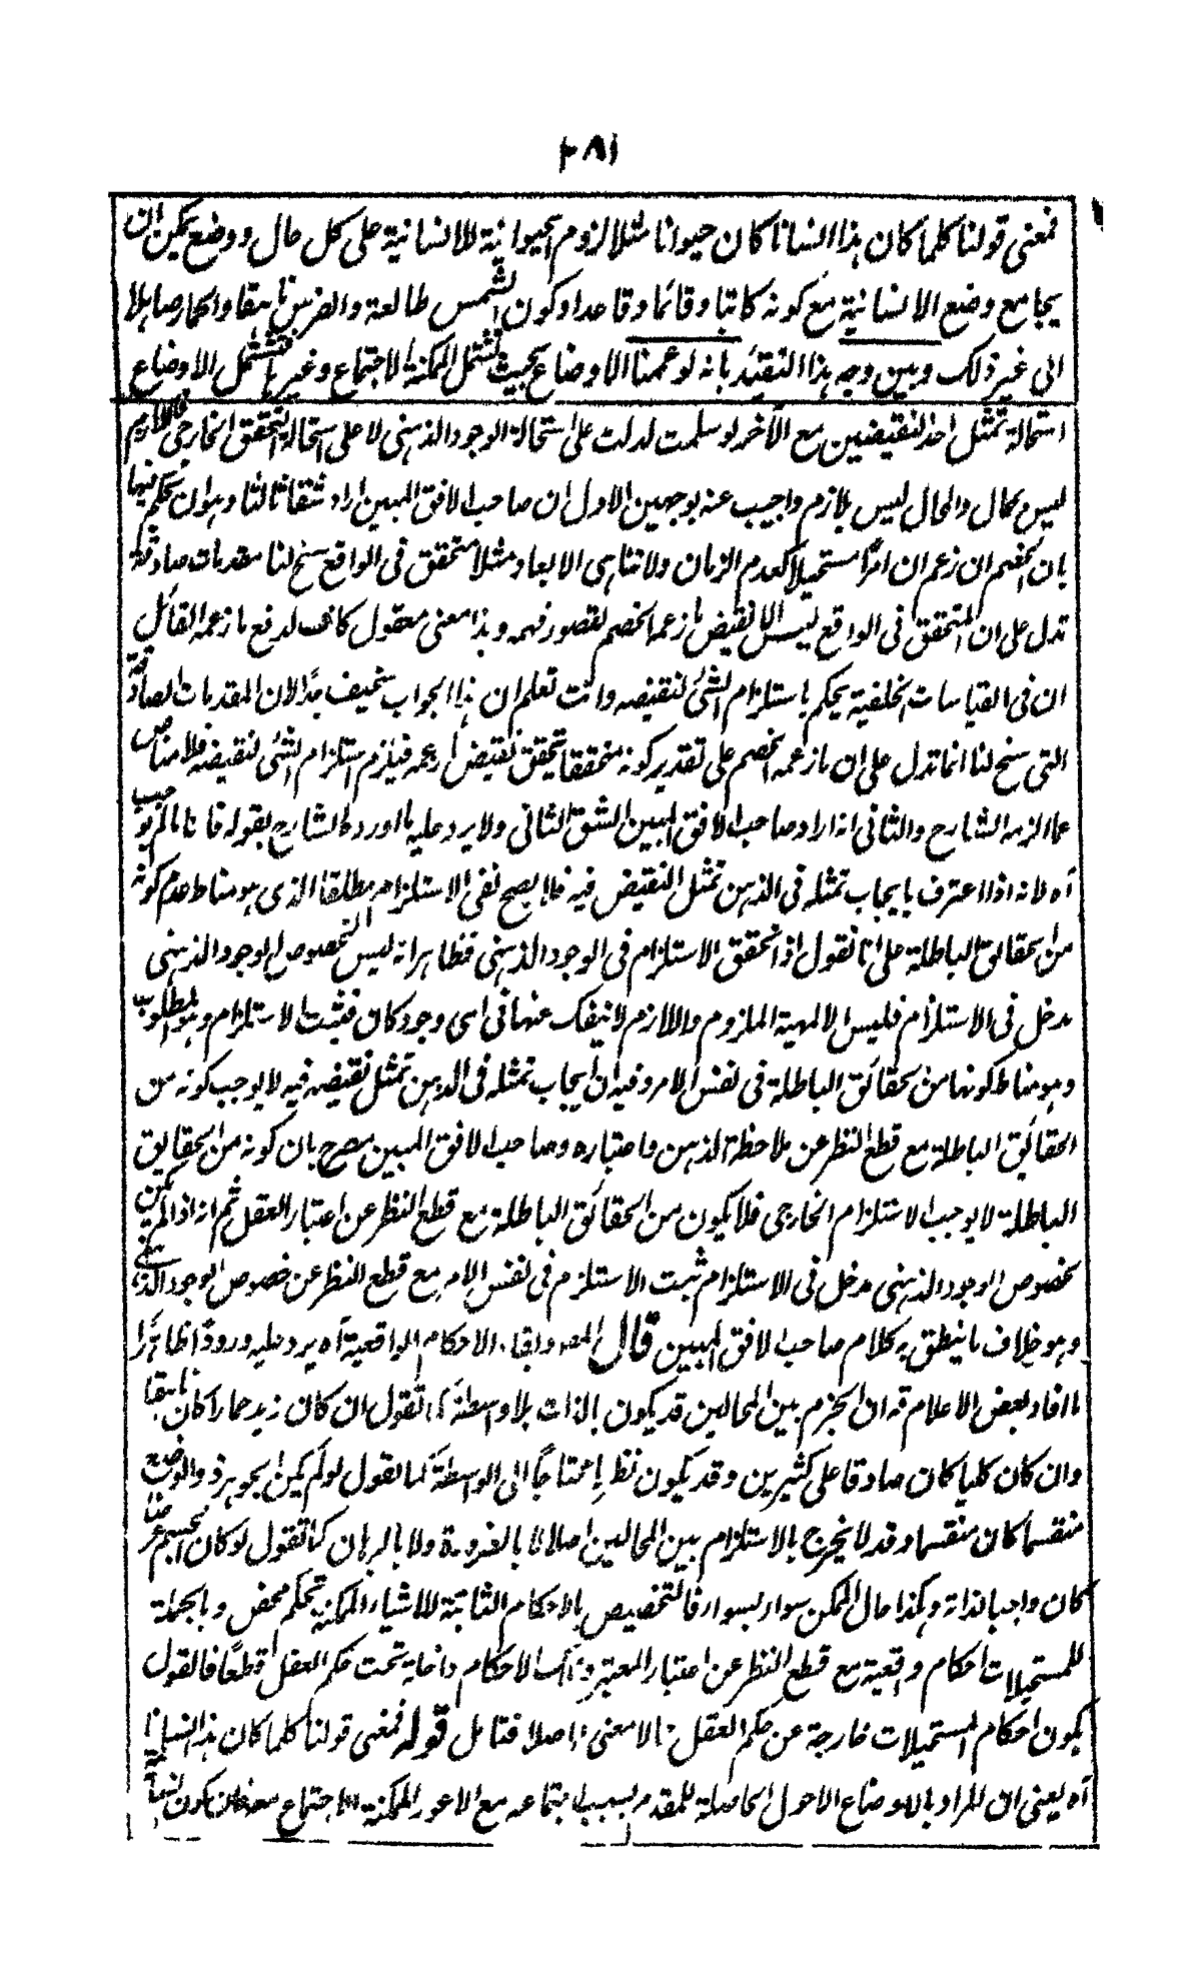 ٢٨١
فمعنى قولنا كلما كان هذا انسانا كان حيوانا مثلا لزوم الحيوانية للانسانية على كل حال ووضع يمكن ان
يجامع وضع الانسانية مع كونه كاتبا وقائما وقاعدا وكون الشمس طالعة والفرس ناهقا والحمار صاهلا
الى غير ذلك وبين وجه هذا التقئيد بانه لو عممنا الاوضاع بحيث تشتمل الممكنة الاجتماع وغيرها فتشتمل الاوضاع
استحالة تمثل احد النقيضين مع الآخر لو سلمت لدلت على استحالة الوجود الذهنى لا على استحالة التحقق الخارجى فاللازم
ليس بمحال والمحال ليس بلازم واجيب عنه بوجهين الاول ان صاحب الافق المبين اراد شقا ثالثا وهو ان نحكم فيها
بان الخصم ان زعم ان امرًا مستحيلا كعدم الزمان ولا تناهى الابعاد مثلا متحقق فى الواقع سنح لنا مقدمات صادقة
تدل على ان المتحقق فى الواقع ليس الا نقيض ما زعمه الخصم لقصور فهمه وهذا معنى معقول كاف لدفع ما زعمه القائل
ان فى القياسات الخلفية يحكم باستلزام الشئ لنقيضه وانت تعلم ان هذا الجواب سخيف جدًا لان المقدمات الصادقة
التى سنح لنا انما تدل على ان ما زعمه الخصم على تقدير كونه متحققا يتحقق نقيض ما زعمه فيلزم استلزام الشئ لنقيضه فلا مناص
عما الزمه الشارح والثانى انه اراد صاحب الافق المبين الشق الثانى ولا يرد عليه ما اورده الشارح بقوله فانا ما لم يوجب
آه لانه اذا اعترف بايجاب تمثله فى الذهن تمثل النقيض فيه فلا يصح نفى الاستلزام مطلقا الذى هو مناط عدم كونه
من الحقائق الباطلة على انا نقول اذا تحقق الاستلزام فى الوجود الذهنى فظاهر انه ليس لخصوص الوجود الذهنى
مدخل فى الاستلزام فليس الا لمهية الملزوم واللازم لا ينفك عنها فى اى وجود كان فثبت الاستلزام وهو المطلوب
وهو مناط كونها من الحقائق الباطلة فى نفس الامر وفيه ان ايجاب تمثله فى الذهن تمثل نقيضه فيه لا يوجب كونه من
الحقائق الباطلة مع قطع النظر عن ملاحظة الذهن واعتباره وصاحب الافق المبين مصرح بان كونه من الحقايق
الباطلة لا يوجب الاستلزام الخارجى فلا يكون من الحقائق الباطلة مع قطع النظر عن اعتبار العقل ثم انه اذا لم يكن
لخصوص الوجود الذهنى مدخل فى الاستلزام ثبت الاستلزام فى نفس الامر مع قطع النظر عن خصوص الوجود الذهنى
وهو خلاف ما ينطق به كلام صاحب الافق المبين قال المص وبقاء الاحكام الواقعية آه يرد عليه ورودًا ظاهرًا
ما افاد بعض الاعلام قه ان الجزم بين المحالين قد يكون بالذات بلا واسطة كما تقول ان كان زيد حمارا كان ناهقا
وان كان كليا كان صادقا على كثيرين وقد يكون نظريا محتاجًا الى الواسطة كما تقول لو لم يكن الجوهر ذو الوضع
منقسما كان منقسما وقد لا يجزم بالاستلزام بين المحالين اصلا لا بالضرورة ولا بالبرهان كما تقول لو كان الجسم عرضا
كان واجبا لذاته وهكذا حال الممكن سواء بسواء فالتخصيص بالاحكام الثابتة للاشياء الممكنة تحكم محض وبالجملة
للمستحيلات احكام واقعية مع قطع النظر عن اعتبار المعتبر وتلك الاحكام داخلة تحت حكم العقل قطعًا فالقول
بكون احكام المستحيلات خارجة عن حكم العقل مما لا معنى له اصلا فتامل قوله فمعنى قولنا كلما كان هذا انسانا
آه يعنى ان المراد بالاوضاع الاحوال الحاصلة للمقدم بسبب اجتماعه مع الامور الممكنة الاجتماع معه